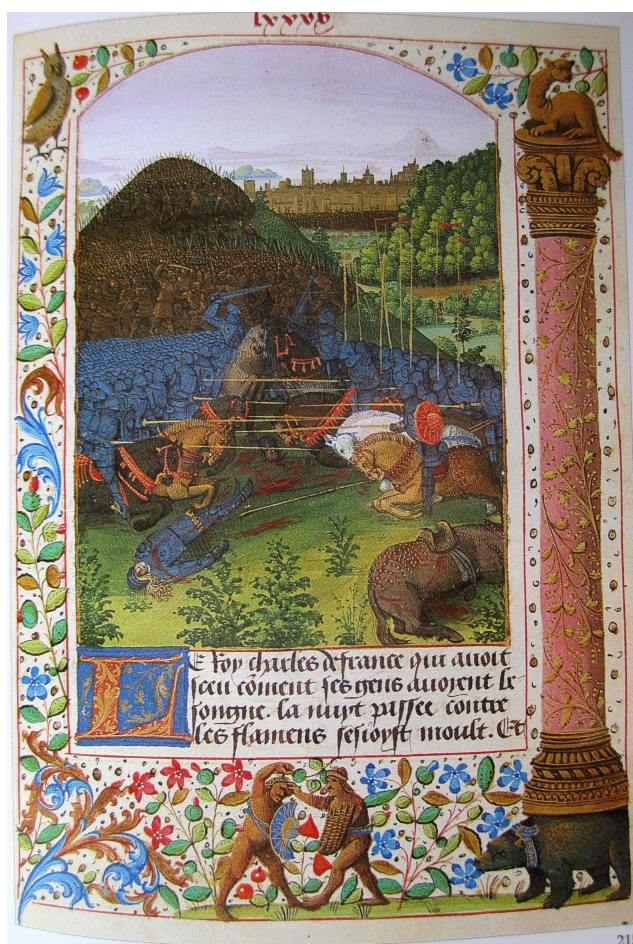 lxxxv
LE Roy charles de france qui auoit
sceu cõment ses gens auoyent be-
songne. la nuyt passee contre
les flamens sesioyst moult. Et
21